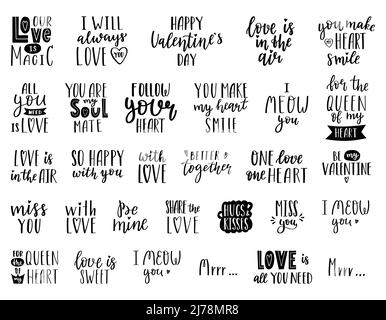 OUR
Love
is
MAGIC
I WILL
always
LOVE you
HAPPY
Valentine's
DAY
love is
in the
air
you make
my HEART
smile
ALL
you
NEED
is LOVE
YOU ARE
my
SOUL
MATE
FOLLOW
your
HEART
YOU MAKE
my heart
SMILE
I
MEOW
you
for the
QUEEN
OF my
HEART
LOVE is
in the AIR
SO HAPPY
with you
with
LOVE
BETTER
together
ONE love
one HEART
BE my
VALENTINE
miss
YOU
with
LOVE
Be
mine
SHARE the
LOVE
HUGS &
KISSES
MISS
you
I MEOW
you
FOR the QUEEN
OF my HEART
love is
SWEET
I MEOW
you
Mrrr...
LOVE is
all YOU NEED
Mrrr...
alamy
Image ID: 2J78MR8
www.alamy.com